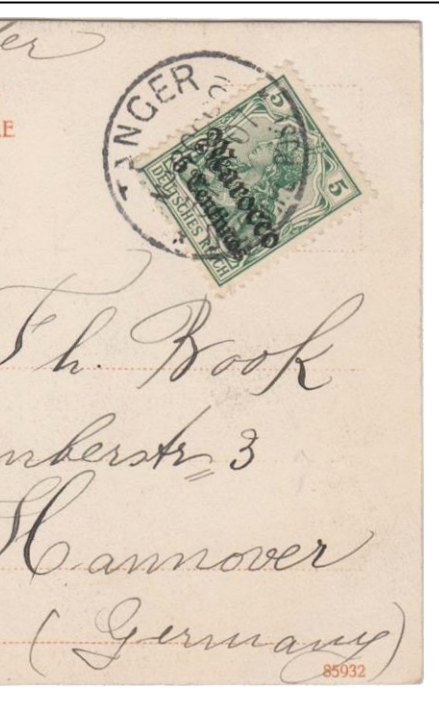 TANGER
E
5
5
Marocco
5 Centimos
DEUTSCHES REICH
Th. Book
nberstr. 3
Hannover
(Germany)
85932